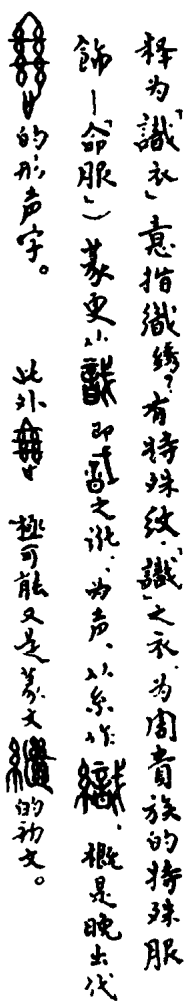 释为「識衣」意指織绣？有特殊纹「識」之衣，为周貴族的特殊服
飾—「命服」）篆更以 即 之讹，为声，以糸作 ，概是晚出代
的形声字。 此外 極可能又是篆文 的初文。